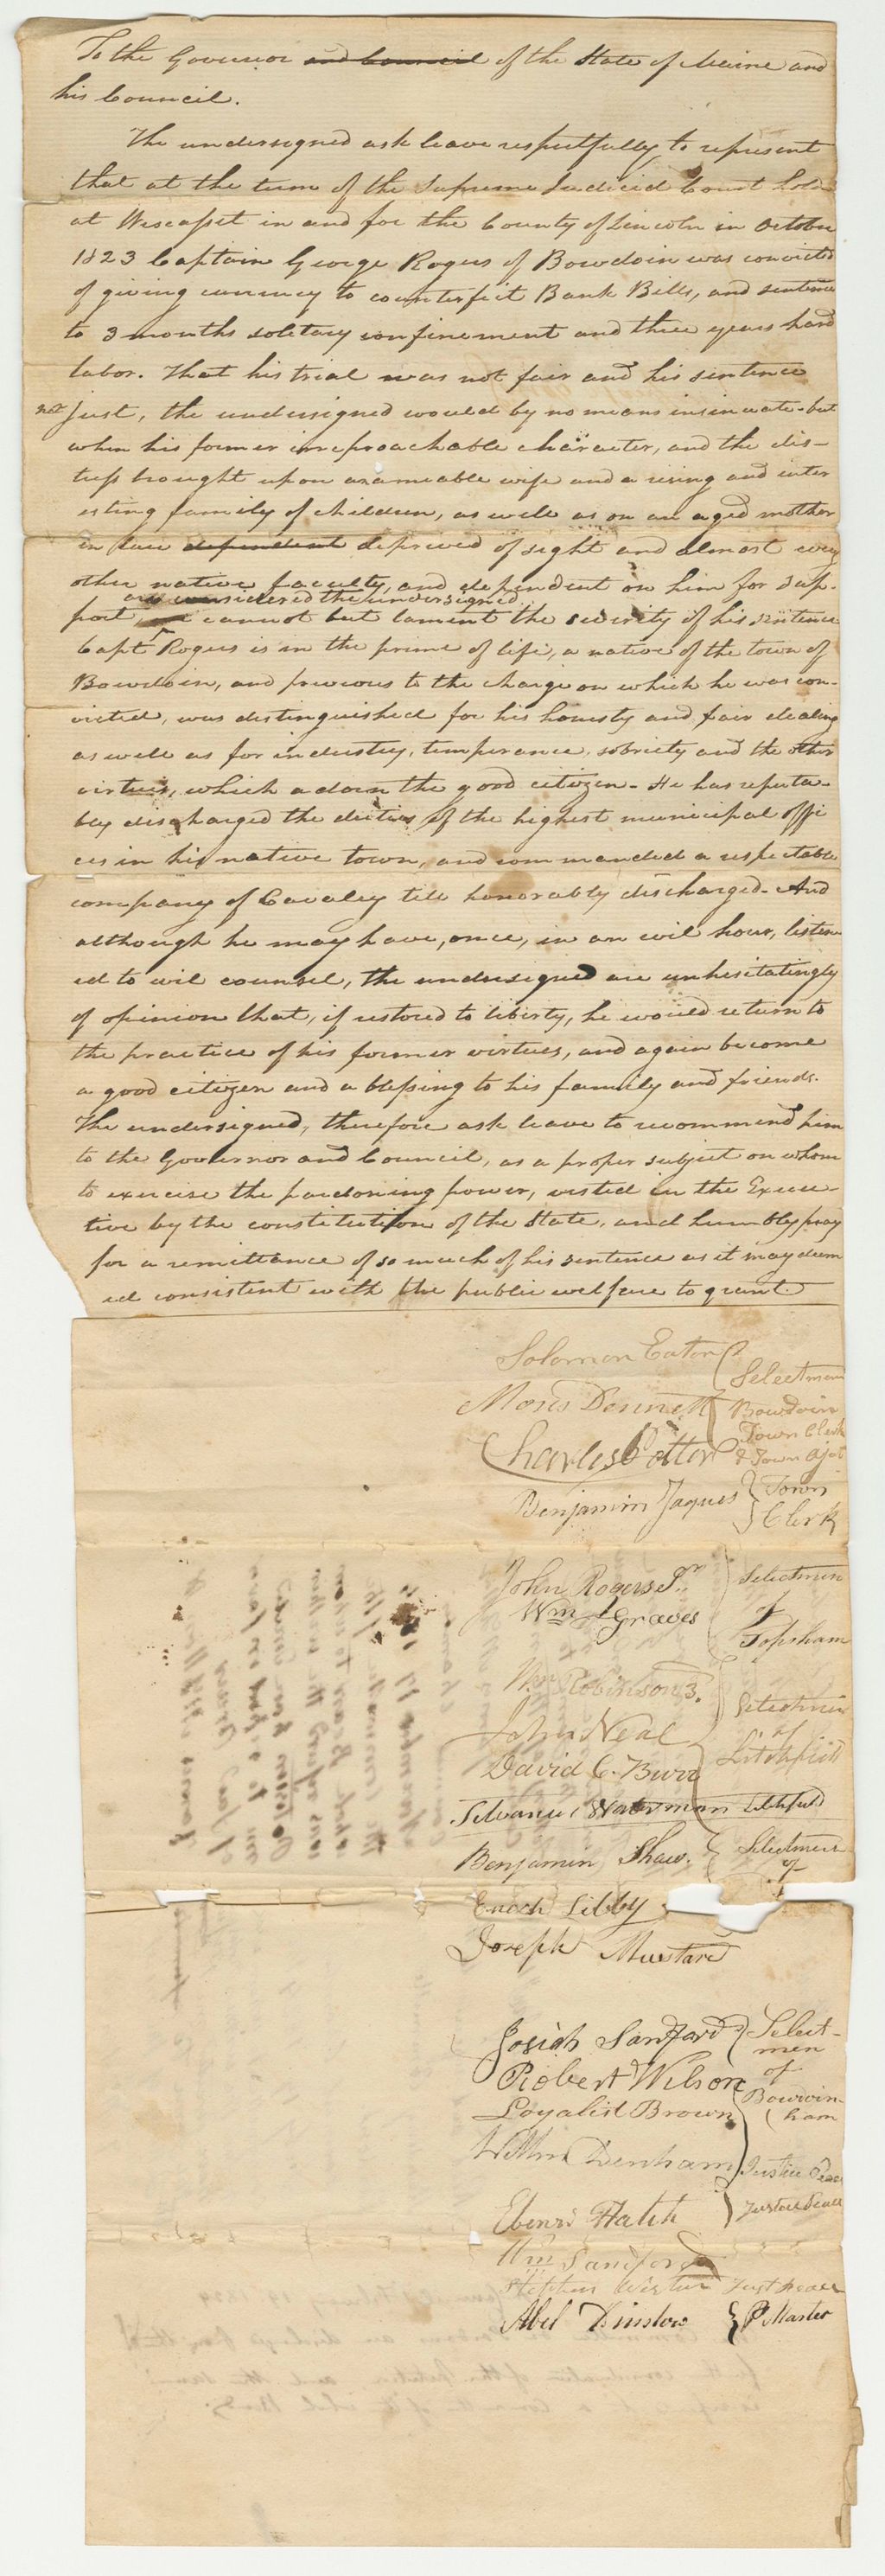 To the Governor and Council of the State of Maine and
his Council.
The undersigned ask leave respectfully to represent
that at the term of the Supreme Judicial Court hold
at Wiscasset in and for the County of Lincoln in October
1823 Captain George Rogers of Bowdoin was convicted
of giving currency to counterfeit Bank Bills, and sentence
to 3 months soletary confinement and three years hard
labor. That his trial was not fair and his sentence
not just, the undersigned would by no means insinuate - but
when his former irreproachable character, and the dis-
tress brought upon an amiable wife and a rising and inter
esting family of children, as well as on an aged mother
in law dependent deprived of sight and almost every
other native faculty, and dependent on him for sup-
are considered the undersigned
port, cannot but lament the severity of his sentence
Capt Rogers is in the prime of life, a native of the town of
Bowdoin, and previous to the charge on which he was con-
victed, was distinguished for his honesty and fair dealing
as well as for industry, temperance, sobriety and the other
virtues, which adorn the good citizen - He has reputa-
bly discharged the duties of the highest municipal offi
ces in his native town, and commanded a respectable
company of Cavalry till honorably discharged - And
although he may have, once, in an evil hour, listen
ed to evil counsel, the undersigned are unhesitatingly
of opinion that, if restored to liberty, he would return to
the practice of his former virtues, and again become
a good citizen and a blessing to his family and friends.
The undersigned, therefore ask leave to recommend him
to the Governor and Council, as a proper subject on whom
to exercise the pardoning power, vested in the Execu-
tive by the constitution of the State, and humbly pray
for a remittance of so much of his sentence as it may deem
ed consistent with the public welfare to grant.
Solomon Eaton
Moses Dennett
Charles Potter
Selectmen
Bowdoin
Town Clerk
& Town
Benjamin Jaques Town
Clerk
John Rogers Jr.
Wm Graves
Selectmen
of
Topsham
Wm Robinson 3.
John Neal
David C. Burr
Selectmen
of
Litchfield
Silvanus Waterman Litchfield
Benjamin Shaw. Selectmen
of
Enoch Libby
Joseph Mustard
Josiah Sanford
Robert Wilson
Loyalist Brown
Select-
men
of
Bowdoin-
ham
Denham Justice Peace
Ebenr Hatch Justice Peace
Wm Sandford
Stephen Just Peace
Abel Dinslow P Master